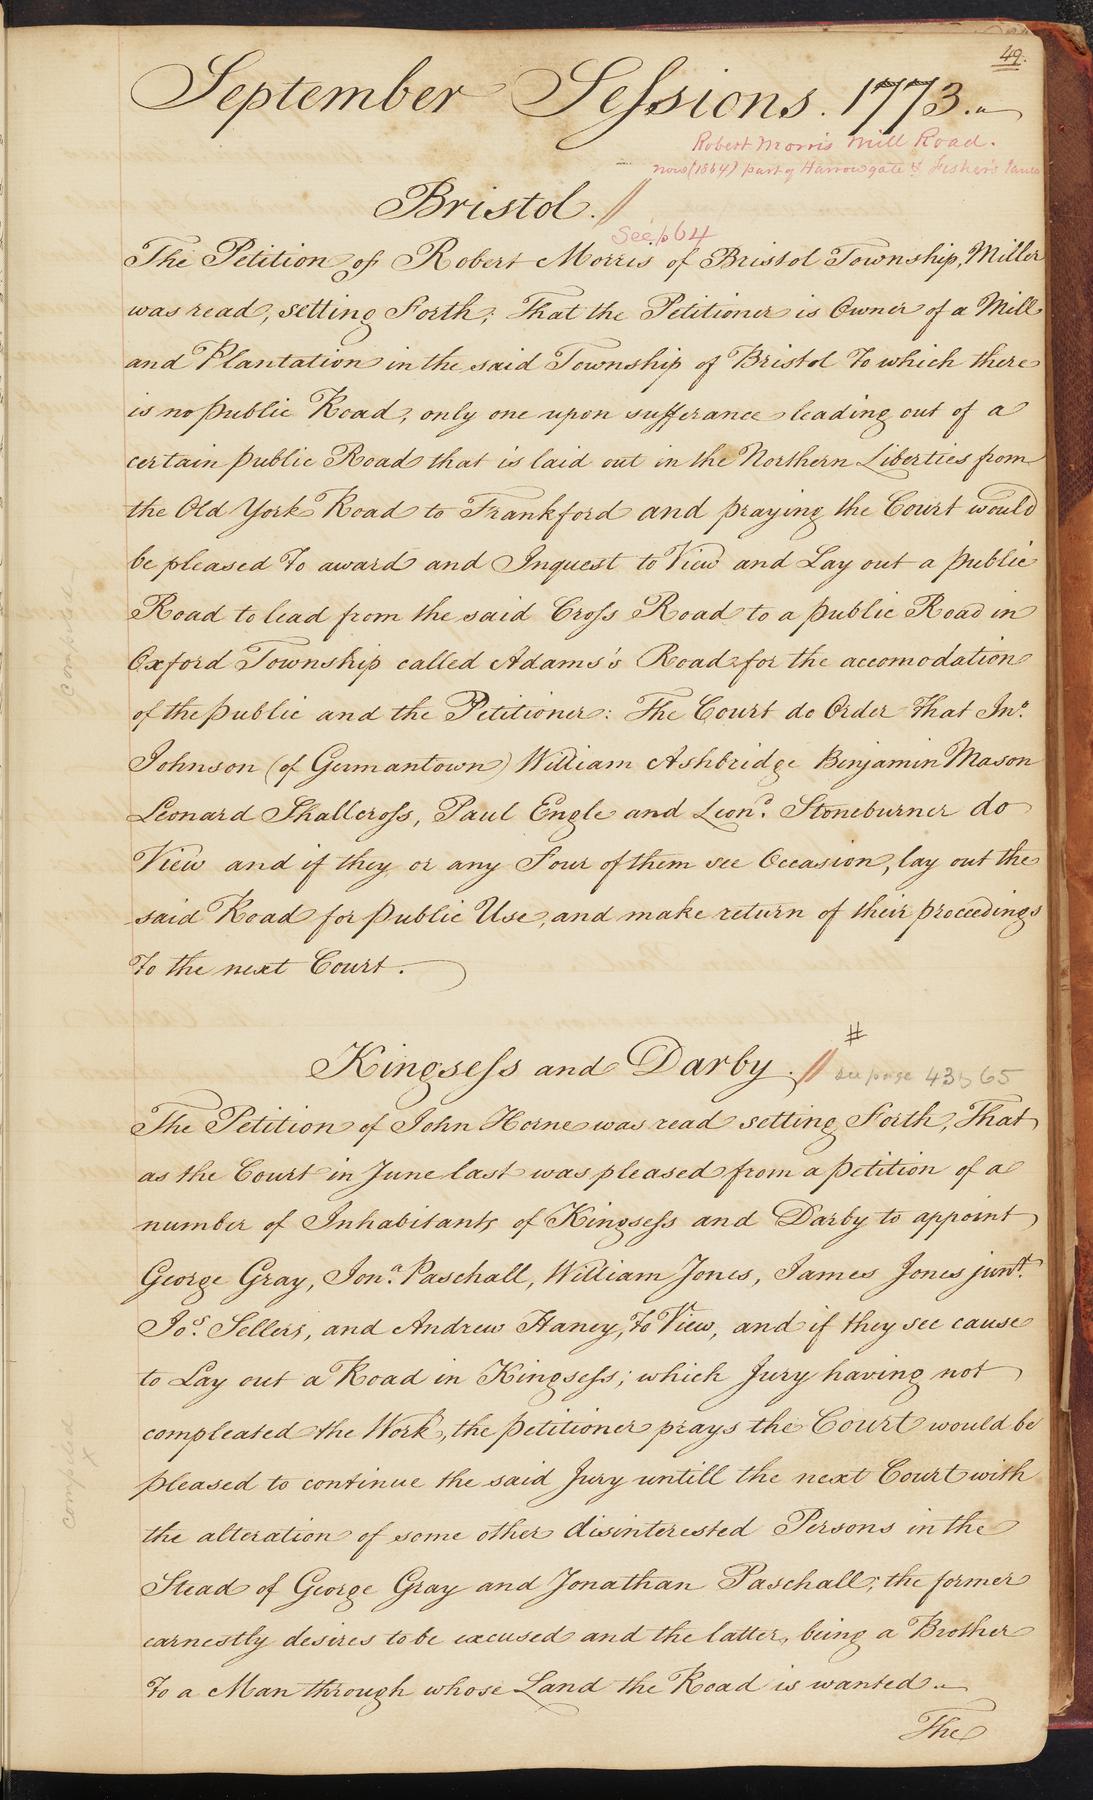 49.
September Sessions. 1773.
Robert Morris Mill Road.
now (1864) part of Harrowgate & Fisher's Lanes
Bristol. //
See p 64
The Petition of Robert Morris of Bristol Township, Miller
was read, setting Forth; That the Petitioner is Owner of a Mill
and Plantation in the said Township of Bristol To which there
is no public Road, only one upon sufferance leading out of a
certain public Road that is laid out in the Northern Liberties from
the Old York Road to Frankford and praying the Court would
be pleased To award and Inquest to View and Lay out a public
Road to lead from the said Cross Road to a public Road in
Oxford Township called Adams's Road for the accomodation
of the public and the Petitioner: The Court do Order That Jno.
Johnson (of Germantown) William Ashbridge Benjamin Mason
Leonard Shallcross, Paul Engle and Leond. Stoneburner do
View and if they or any Four of them see Occasion, lay out the
said Road for public Use, and make return of their proceedings
To the next Court.
#
Kingsess and Darby. // see page 43 & 65
The Petition of John Horne was read setting Forth, That
as the Court in June last was pleased from a petition of a
number of Inhabitants of Kingsess and Darby to appoint
George Gray, Jona. Paschall, William Jones, James Jones junr.
Jos. Sellers, and Andrew Haney, To View, and if they see cause
to Lay out a Road in Kingsess; which Jury having not
compleated the Work, the petitioner prays the Court would be
pleased to continue the said Jury untill the next Court with
the alteration of some other disinterested Persons in the
Stead of George Gray and Jonathan Paschall; the former
earnestly desires to be excused and the latter, being a Brother
To a Man through whose Land the Road is wanted.
The
compared
compiled
x